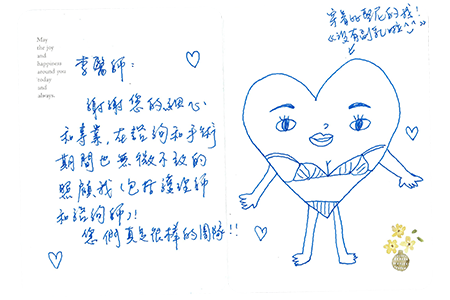 May
the joy
and
happiness
around you
today
and
always.
李醫師：
謝謝您的細心
和專業，在諮詢和手術
期間也無微不致的
照顧我（包括護理師
和諮詢師）！
您們真是很棒的團隊!!
穿着比基尼的我！
《沒有副乳啦^^》